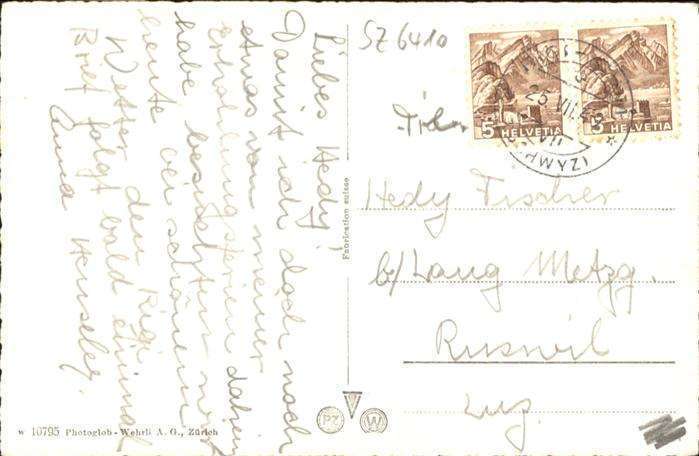 Liebes Hedy!
Damit ich doch noch
etwas von meiner
Erholungsferien daheim
habe, besichtigen wir
heute bei schönem
Wetter den Rigi.
Brief folgt bald einmal
Anna
SZ 6410
5 HELVETIA
5 HELVETIA
(SCHWYZ)
Hedy Fischer
b/ Lang Metzg.
Ruswil
Luz.
Fabrication suisse
PZ W
W 10795 Photoglob-Wehrli A. G., Zürich